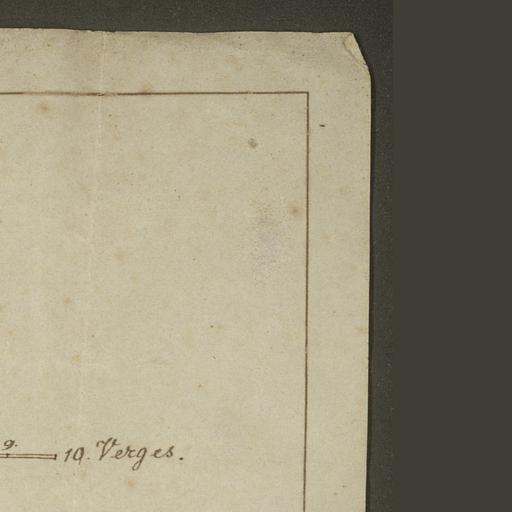 9. 10. Verges.